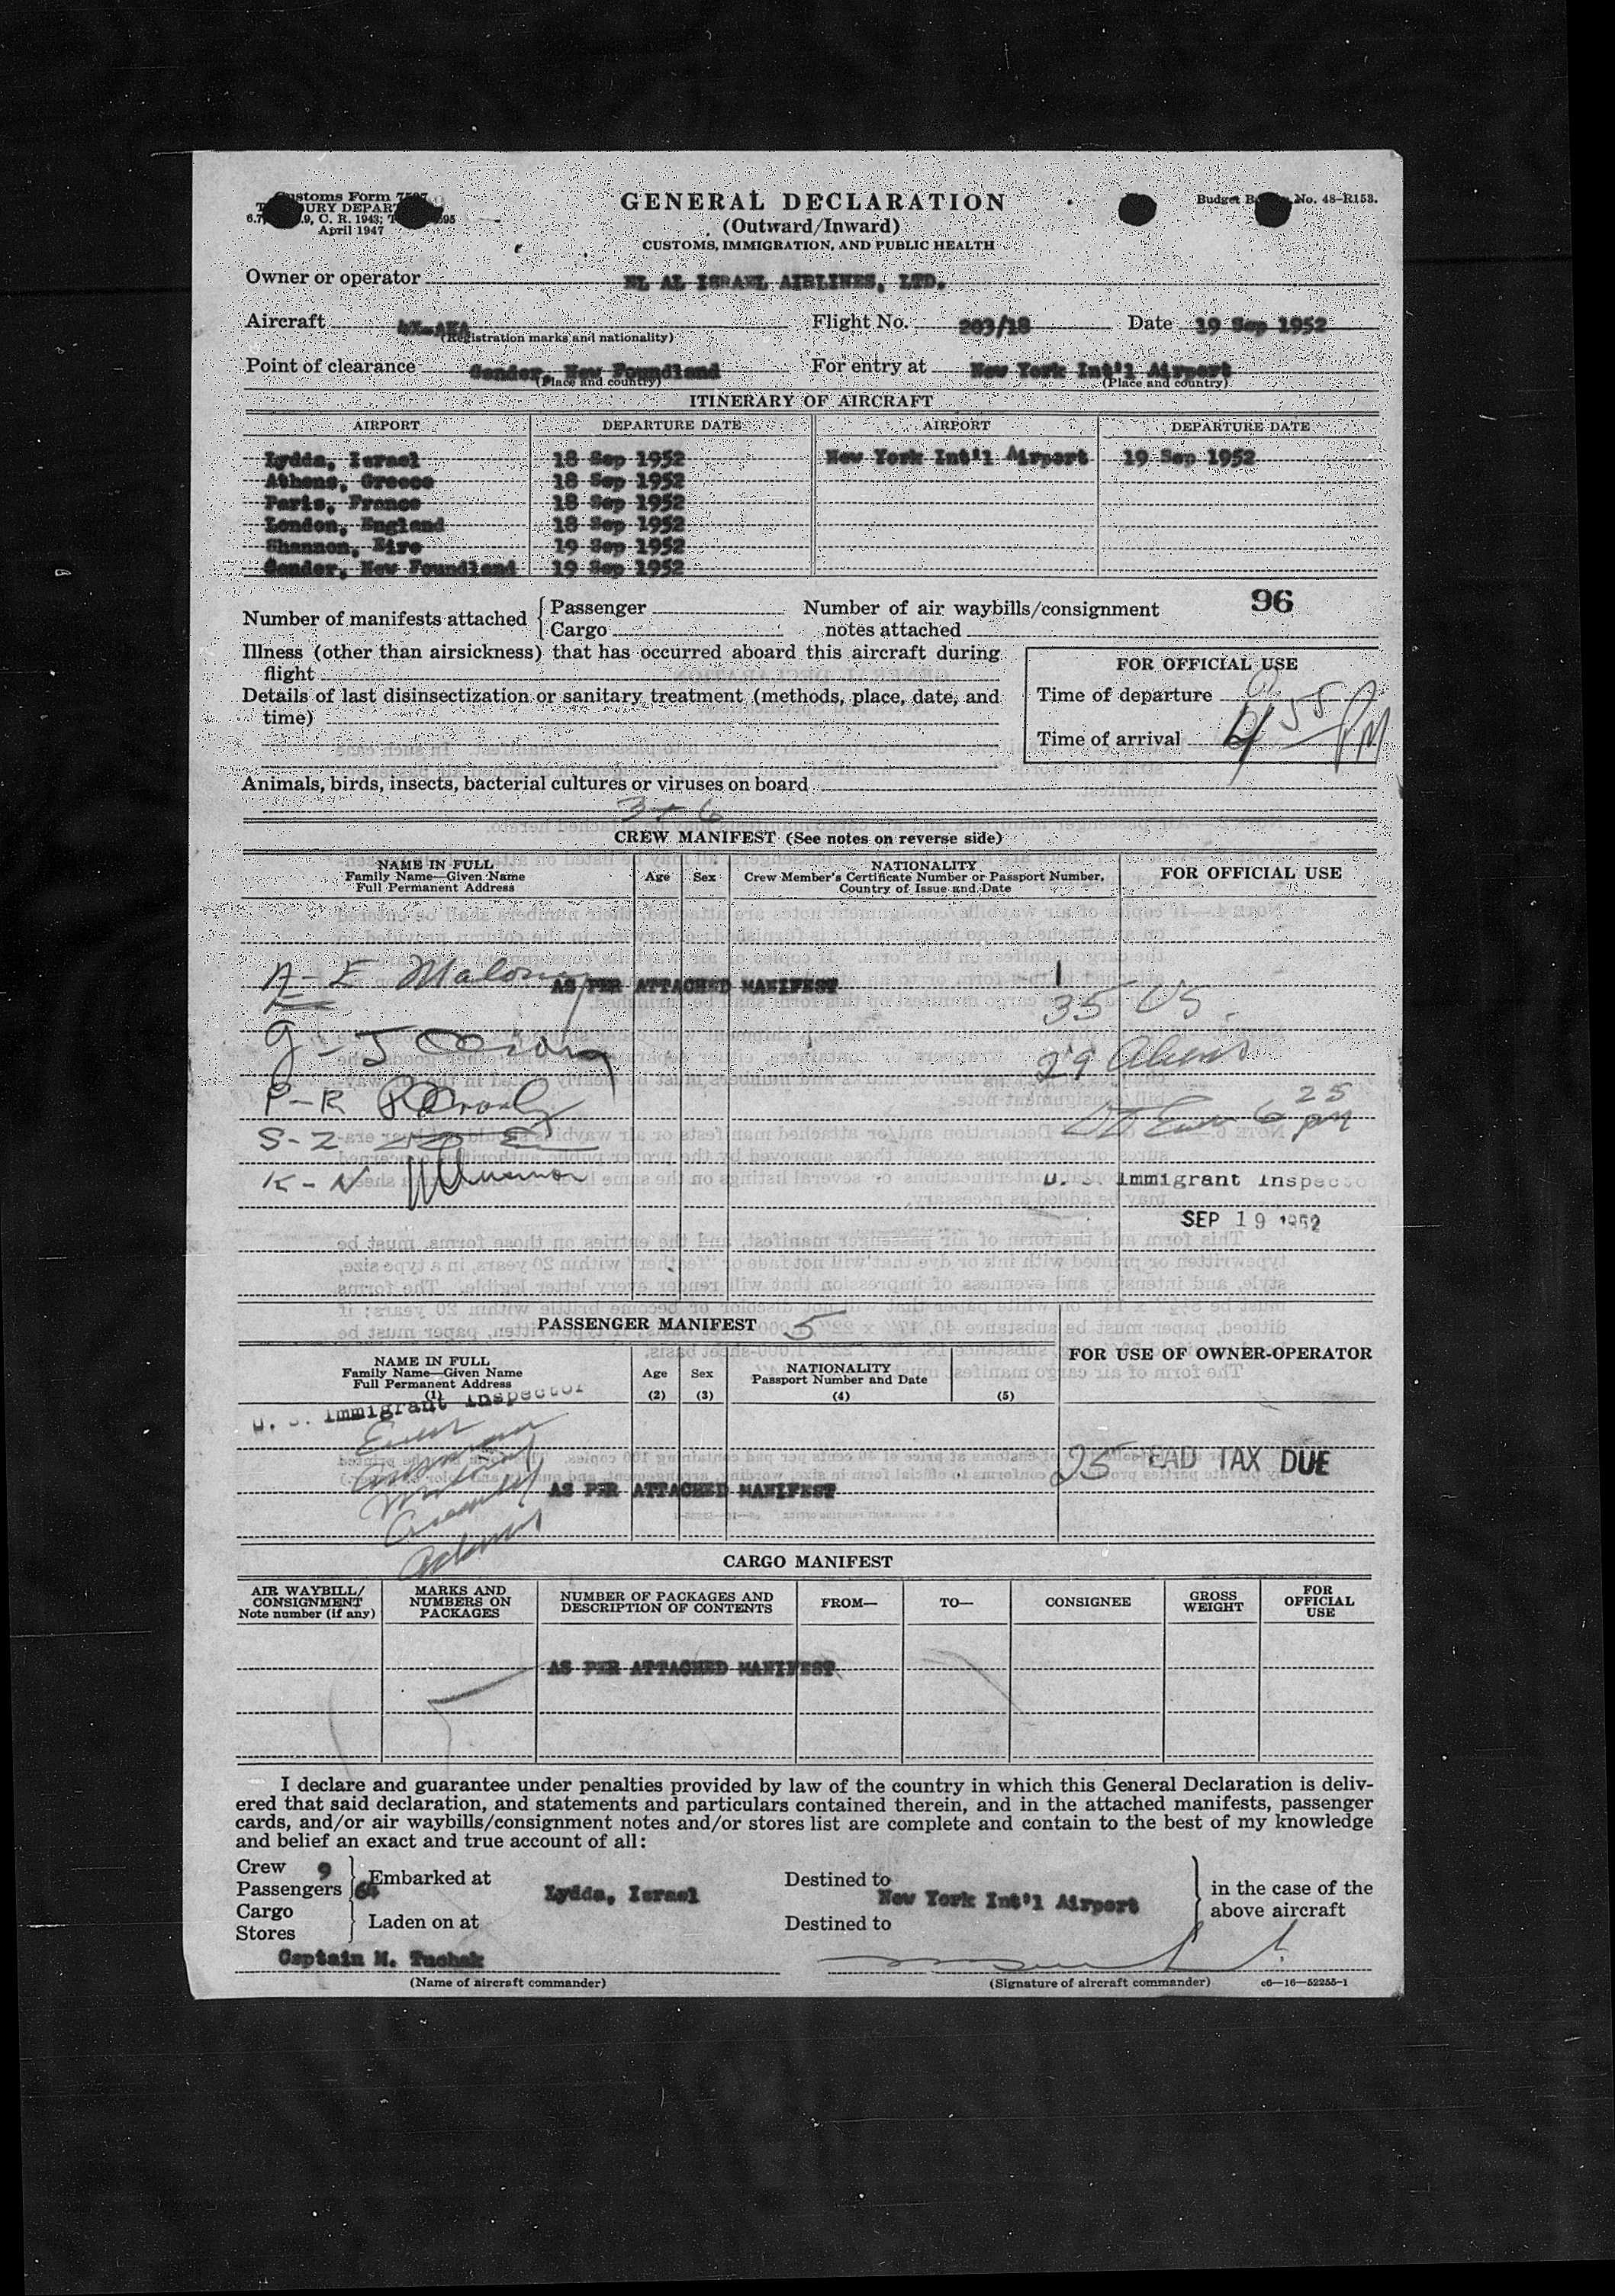 Customs Form
TREASURY DEPART
April 1947
GENERAL DECLARATION
(Outward/Inward)
CUSTOMS, IMMIGRATION, AND PUBLIC HEALTH
Budget No. 48-R153.
Owner or operator EL AL ISRAEL AIRLINES, LTD.
Aircraft 4X-AKA Flight No. 203/18 Date 19 Sep 1952
(Registration marks and nationality)
Point of clearance Gander, New Foundland For entry at New York Int'l Airport
(Place and country) (Place and country)
ITINERARY OF AIRCRAFT
AIRPORT DEPARTURE DATE AIRPORT DEPARTURE DATE
Lydda, Israel 18 Sep 1952 New York Int'l Airport 19 Sep 1952
Athens, Greece 18 Sep 1952
Paris, France 18 Sep 1952
London, England 18 Sep 1952
Shannon, Eire 19 Sep 1952
Gander, New Foundland 19 Sep 1952
96
Number of manifests attached { Passenger Number of air waybills/consignment
Cargo notes attached
Illness (other than airsickness) that has occurred aboard this aircraft during
flight
Details of last disinsectization or sanitary treatment (methods, place, date, and
time)
FOR OFFICIAL USE
Time of departure
Time of arrival 4 55 PM
Animals, birds, insects, bacterial cultures or viruses on board
3 + 6
CREW MANIFEST (See notes on reverse side)
NAME IN FULL
Family Name—Given Name
Full Permanent Address
Age Sex
NATIONALITY
Crew Member's Certificate Number or Passport Number,
Country of Issue and Date
FOR OFFICIAL USE
A - F Maloney
AS PER ATTACHED MANIFEST
35 US.
G - J
29 Aliens
P - R
6 25 pm
S - Z
K - N
U. S. Immigrant Inspector
SEP 19 1952
PASSENGER MANIFEST 5
NAME IN FULL
Family Name—Given Name
Full Permanent Address
(1)
Age
(2)
Sex
(3)
NATIONALITY
Passport Number and Date
(4)
(5)
FOR USE OF OWNER-OPERATOR
U. S. Immigrant Inspector
25 HEAD TAX DUE
AS PER ATTACHED MANIFEST
CARGO MANIFEST
AIR WAYBILL/
CONSIGNMENT
Note number (if any)
MARKS AND
NUMBERS ON
PACKAGES
NUMBER OF PACKAGES AND
DESCRIPTION OF CONTENTS
FROM—
TO—
CONSIGNEE
GROSS
WEIGHT
FOR
OFFICIAL
USE
AS PER ATTACHED MANIFEST
I declare and guarantee under penalties provided by law of the country in which this General Declaration is deliv-
ered that said declaration, and statements and particulars contained therein, and in the attached manifests, passenger
cards, and/or air waybills/consignment notes and/or stores list are complete and contain to the best of my knowledge
and belief an exact and true account of all:
Crew 9
Passengers 64
Cargo
Stores
Embarked at Lydda, Israel
Laden on at
Destined to New York Int'l Airport
Destined to
in the case of the
above aircraft
Captain M. Tuchak
(Name of aircraft commander) (Signature of aircraft commander) c6—16—52255-1